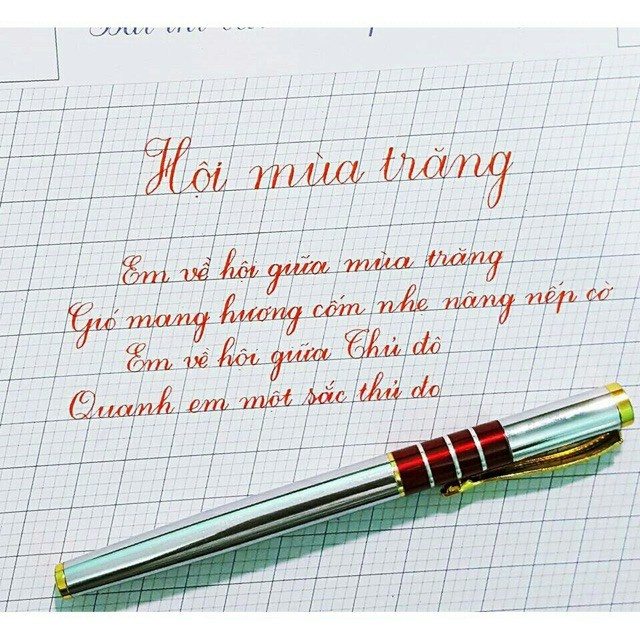 Hội mùa trăng
Em về hội giữa mùa trăng
Gió mang hương cốm nhẹ nâng nếp cờ
Em về hội giữa Thủ đô
Quanh em một sắc thủ do